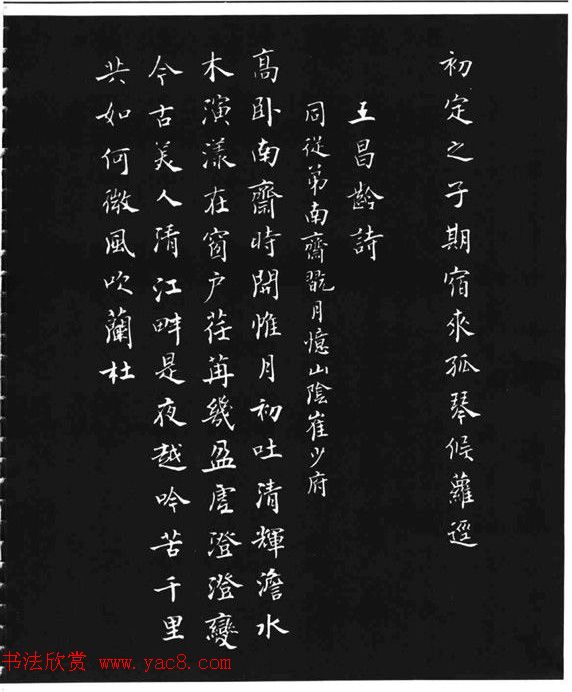 初定之子期宿來孤琴候蘿逕
王昌齡詩
同從弟南齋翫月憶山陰崔少府
高卧南齋時開惟月初吐清輝澹水
木演漾在窗户荏苒幾盈虛澄澄變
今古美人清江畔是夜越吟苦千里
共如何微風吹蘭杜
书法欣赏 www.yac8.com